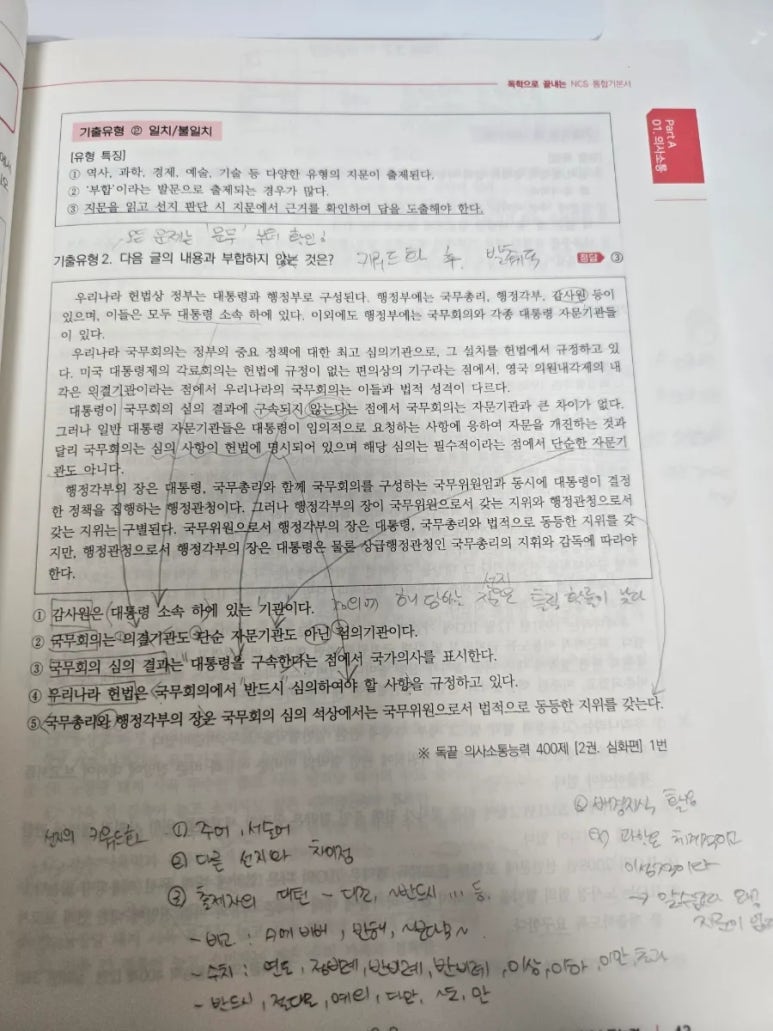 독학으로 끝내는 NCS 통합기본서
Part A
01. 의사소통
기출유형 ② 일치/불일치
[유형 특징]
① 역사, 과학, 경제, 예술, 기술 등 다양한 유형의 지문이 출제된다.
② '부합'이라는 발문으로 출제되는 경우가 많다.
③ 지문을 읽고 선지 판단 시 지문에서 근거를 확인하여 답을 도출해야 한다.
모든 문제는 '문두' 부터 확인!
기출유형 2. 다음 글의 내용과 부합하지 않는 것은? 키워드화 후, 발췌독 정답 ③
우리나라 헌법상 정부는 대통령과 행정부로 구성된다. 행정부에는 국무총리, 행정각부, 감사원 등이
있으며, 이들은 모두 대통령 소속 하에 있다. 이외에도 행정부에는 국무회의와 각종 대통령 자문기관들
이 있다.
우리나라 국무회의는 정부의 중요 정책에 대한 최고 심의기관으로, 그 설치를 헌법에서 규정하고 있
다. 미국 대통령제의 각료회의는 헌법에 규정이 없는 편의상의 기구라는 점에서, 영국 의원내각제의 내
각은 의결기관이라는 점에서 우리나라의 국무회의는 이들과 법적 성격이 다르다.
대통령이 국무회의 심의 결과에 구속되지 않는다는 점에서 국무회의는 자문기관과 큰 차이가 없다.
그러나 일반 대통령 자문기관들은 대통령이 임의적으로 요청하는 사항에 응하여 자문을 개진하는 것과
달리 국무회의는 심의 사항이 헌법에 명시되어 있으며 해당 심의는 필수적이라는 점에서 단순한 자문기
관도 아니다.
행정각부의 장은 대통령, 국무총리와 함께 국무회의를 구성하는 국무위원임과 동시에 대통령이 결정
한 정책을 집행하는 행정관청이다. 그러나 행정각부의 장이 국무위원으로서 갖는 지위와 행정관청으로서
갖는 지위는 구별된다. 국무위원으로서 행정각부의 장은 대통령, 국무총리와 법적으로 동등한 지위를 갖
지만, 행정관청으로서 행정각부의 장은 대통령은 물론 상급행정관청인 국무총리의 지휘와 감독에 따라야
한다.
① 감사원은 대통령 소속 하에 있는 기관이다.
해당하는 선지 작은 틀릴 확률이 낮다
② 국무회의는 의결기관도 단순 자문기관도 아닌 심의기관이다.
③ 국무회의 심의 결과는 대통령을 구속한다는 점에서 국가의사를 표시한다.
④ 우리나라 헌법은 국무회의에서 반드시 심의하여야 할 사항을 규정하고 있다.
⑤ 국무총리와 행정각부의 장은 국무회의 심의 석상에서는 국무위원으로서 법적으로 동등한 지위를 갖는다.
※ 독끝 의사소통능력 400제 [2권. 심화편] 1번
선지의 키워드화
① 주어, 서술어
② 다른 선지와 차이점
③ 출제자의 패턴 - 대조, ~반드시 ... 등.
- 비교 : A에 비해, 반해, ~보다 ~
- 수치 : 연도, 정비례, 반비례, 반비례, 이상, 이하, 이만, 초과
- 반드시, 절대로, 예외, 다만, ~도, 만
배경지식 활용
ex) 과학은 체계적이고
이성적이다
→